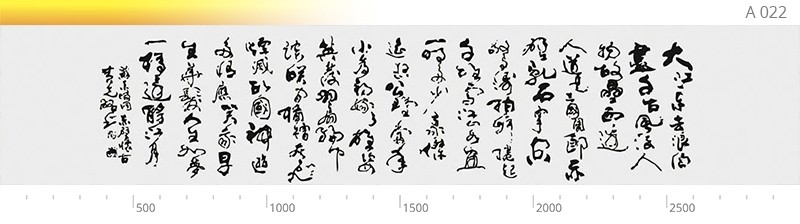 A 022
大江东去浪淘
盡千古風流人
物故壘西边
人道是三國周郎赤
壁乱石穿空
惊涛拍岸捲起
千堆雪江山如画
一時多少豪傑
遥想公瑾當年
小喬初嫁了雄姿
英發羽扇綸巾
談笑间樯櫓灰飞
煙滅故國神遊
多情應笑我早
生華髮人生如夢
一樽還酹江月
蘇東坡詞赤壁懷古
500
1000
1500
2000
2500